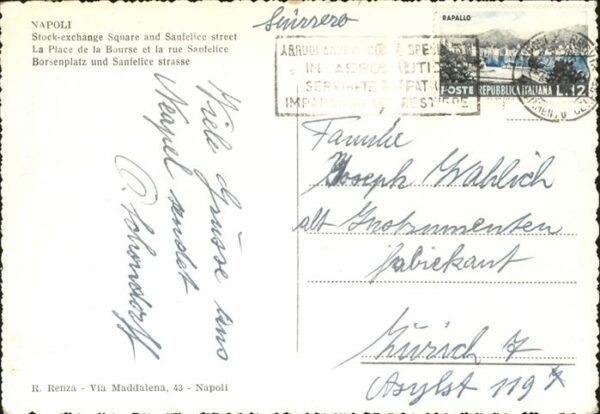 NAPOLI
Stock-exchange Square and Sanfelice street
La Place de la Bourse et la rue Sanfelice
Borsenplatz und Sanfelice strasse
Svizzero
RAPALLO
POSTE REPUBBLICA ITALIANA L.12
IN AERONAUTICA
Viele Grüsse aus
Neapel sendet
Familie
Joseph Wahlich
alt Instrumenten
fabrikant
Zürich 7
Asylst 119
R. Renza - Via Maddalena, 43 - Napoli